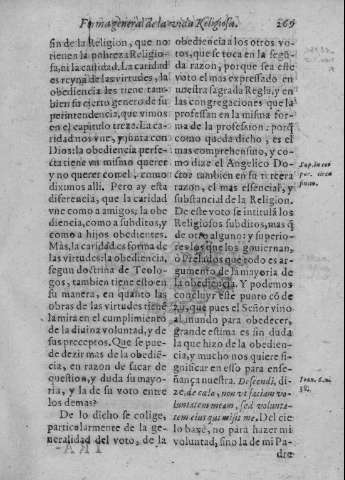 Forma general de la vida Religiosa. 269
sin de la Religion, que no
tienen la pobreza Religio-
sa, ni la castidad. La caridad
es reyna de las virtudes, la
obediencia les tiene tam-
bien su cierto genero de su
perintendencia, que vimos
en el capitulo treze. La ca-
ridad nos vne, y junta con
Dios: la obediencia perfe-
cta tiene vn mismo querer
y no querer con el, como
diximos alli. Pero ay esta
diferencia, que la caridad
vne como a amigos; la obe
diencia, como a subditos, y
como a hijos obedientes.
Mas, la caridad es forma de
las virtudes: la obediencia,
segun doctrina de Teolo-
gos, tambien tiene esto en
su manera, en quanto las
obras de las virtudes tienē
la mira en el cumplimiento
de la diuina voluntad, y de
sus preceptos. Que se pue-
de dezir mas de la obediē-
cia, en razon de sacar de
question, y duda su mayo-
ria, y la de su voto entre
los demas?
De lo dicho se colige,
particularmente de la ge-
neralidad del voto, de la
obediencia a los otros vo-
tos, que se toca en la segū-
da razon, porque sea este
voto el mas expressado en
nuestra sagrada Regla, y en
las congregaciones que la
professan en la misma for-
ma de la profession: porq̄
como queda dicho, es el
mas comprehensiuo, y co-
mo dize el Angelico Do-
ctor tambien en su tercera
razon, el mas essencial, y
substancial de la Religion.
De este voto se intitulā los
Religiosos subditos, mas q̄
de otro alguno: y superio-
res los que los gouiernan,
o Prelados que todo es ar-
gumento de la mayoria de
la obediencia. Y podemos
concluyr este punto cō de
zir, que pues el Señor vino
al mundo para obedecer,
grande estima es sin duda
la que hizo de la obedien-
cia, y mucho nos quiere si-
gnificar en esto para ense-
ñança nuestra. Descendi, di-
ze, de cælo, non vt faciam vo-
luntatem meam, sed volunta-
tem eius qui misit me. Del cie
lo baxè, no para hazer mi
voluntad, sino la de mi Pa-
dre
Ioan. 6. nu.
38.